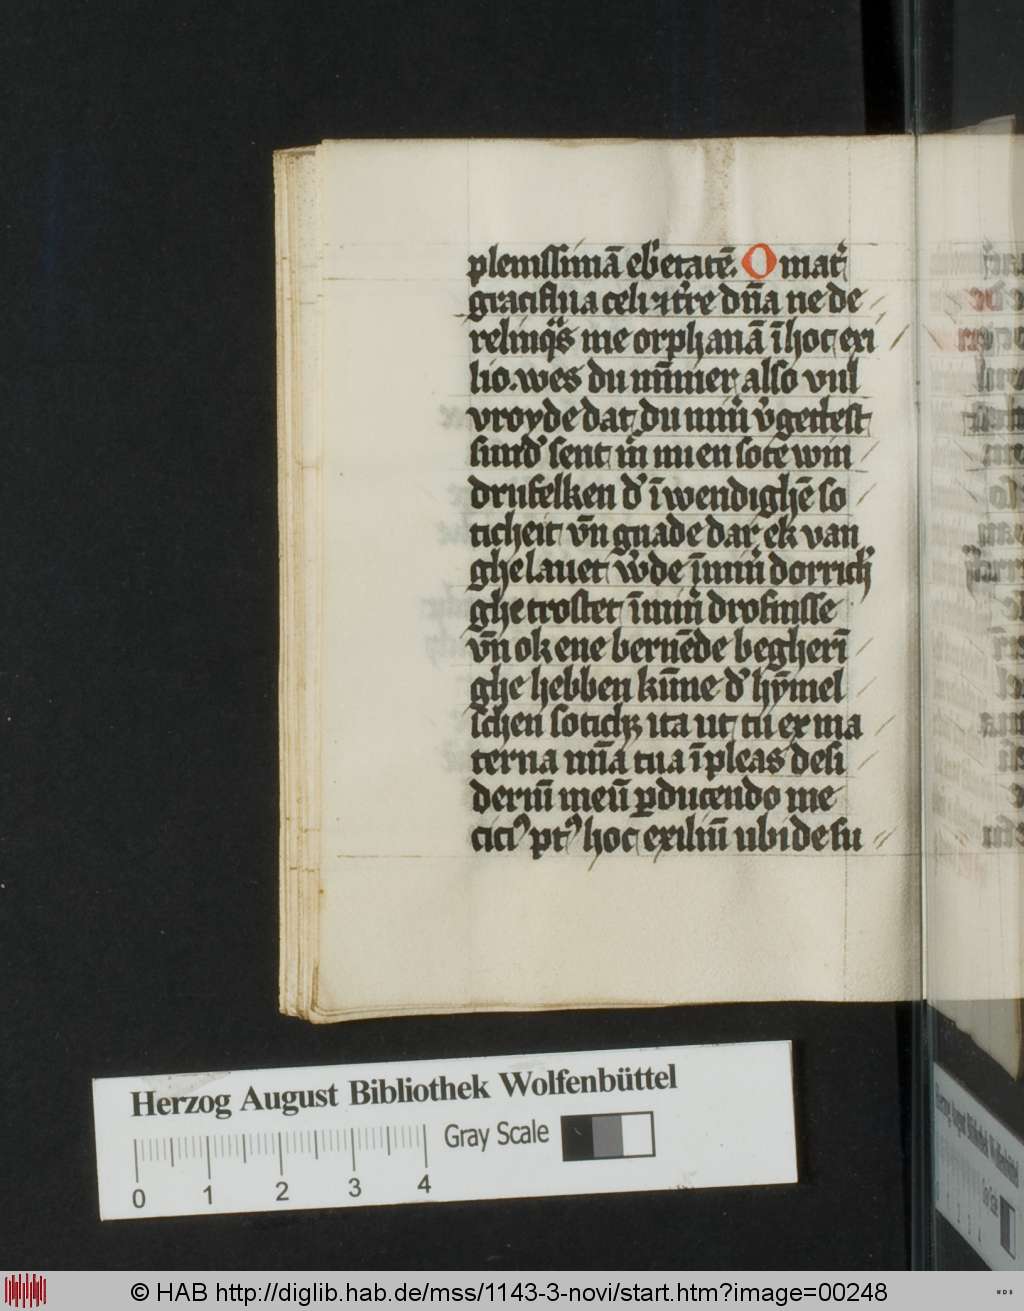 plenissimā eb'etatē. O mat'
graciflua celi ⁊ t're dn̄a ne de
relinq̄s me orphanā ī hoc exi
lio. wes du nūmer also vul
vroyde dat du min' v'getest
sund' sent m' in en sote win
drufelken d' ī wendighē so
ticheit vn̄ gnade dar ek van
ghelauet w'de ī min' dorrich'
ghe trostet ī min' drofnisse
vn̄ ok ene bernēde begherī
ghe hebben kūne d' hȳmel
schen soticht ita ut tu ex ma
terna mīa tua īpleas desi
deriū meū ꝑducendo me
cici⁹ pt⁹ hoc exiliū ubi de su
Herzog August Bibliothek Wolfenbüttel
Gray Scale
0 1 2 3 4
© HAB http://diglib.hab.de/mss/1143-3-novi/start.htm?image=00248